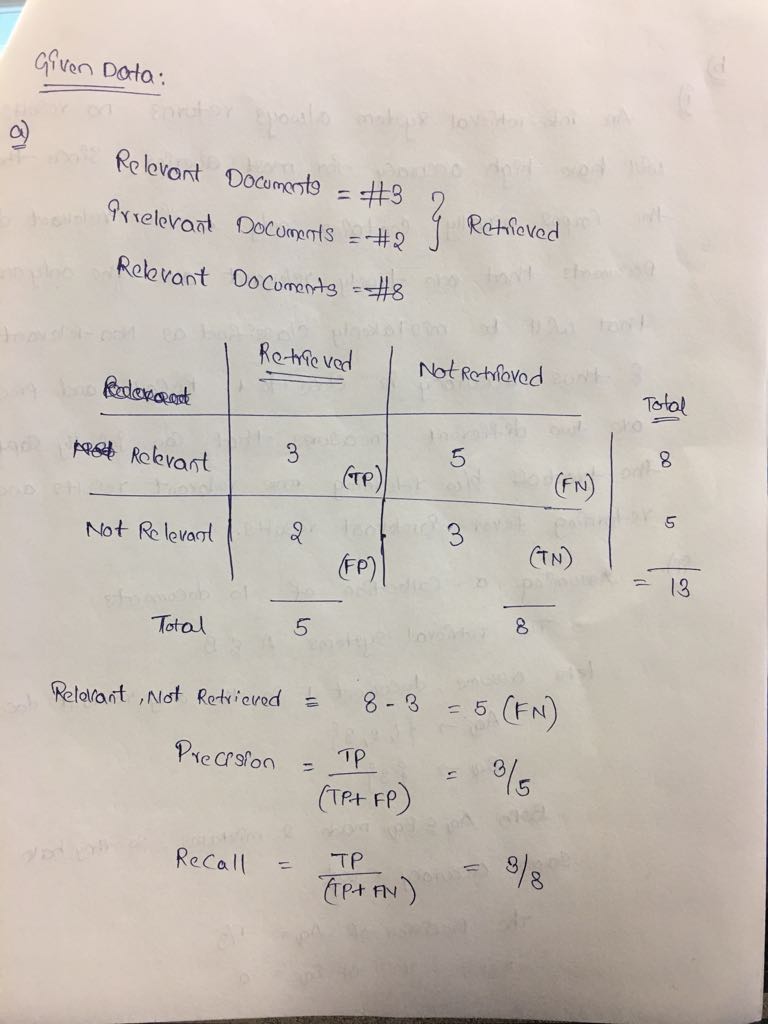 Given Data:
a)
Relevant Documents = #3
Irrelevant Documents = #2 } Retrieved
Relevant Documents = #8
Retrieved Not Retrieved Total
Relevant 3 (TP) 5 (FN) 8
Not Relevant 2 (FP) 3 (TN) 5
= 13
Total 5 8
Relevant, Not Retrieved = 8 - 3 = 5 (FN)
Precision = TP / (TP + FP) = 3/5
Recall = TP / (TP + FN) = 3/8